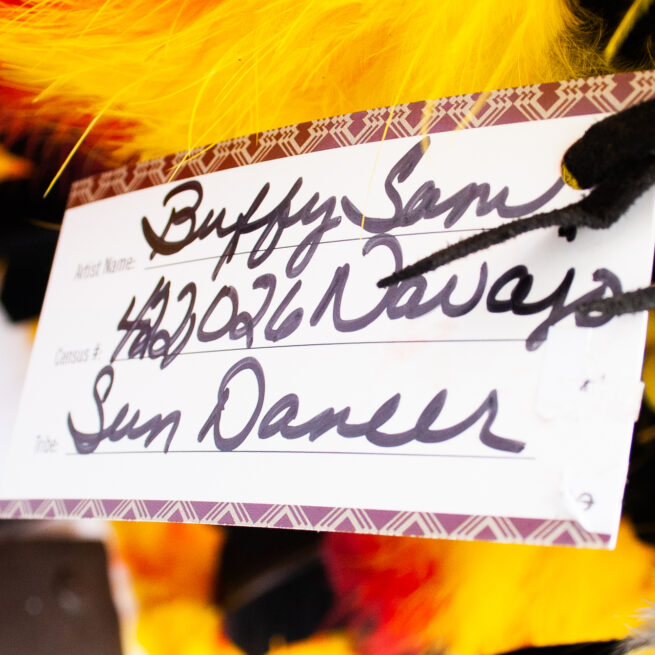 Artist Name: Buffy Sam
Census #: 422026 Navajo
Tribe: Sun Dancer